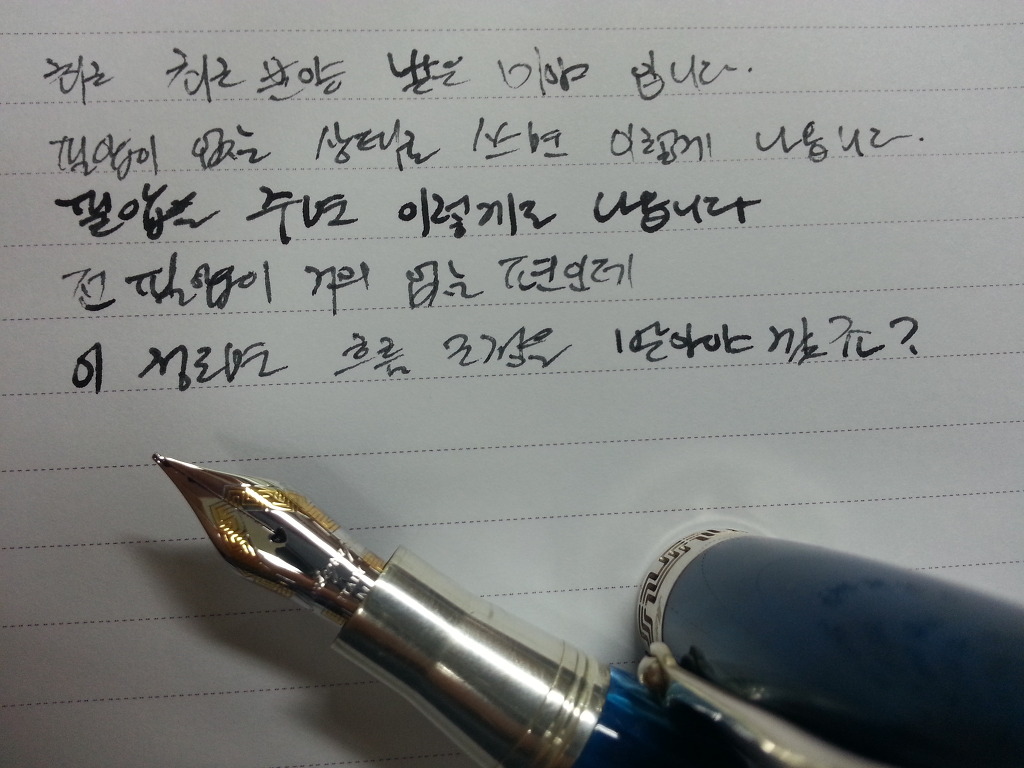 최근 분양 받은 미아 입니다.
필압이 없는 상태로 쓰면 이렇게 나옵니다.
필압을 주면 이렇게 나옵니다
전 필압이 거의 없는 편인데
이 정도면 흐름 조절을 받아야 할까요?